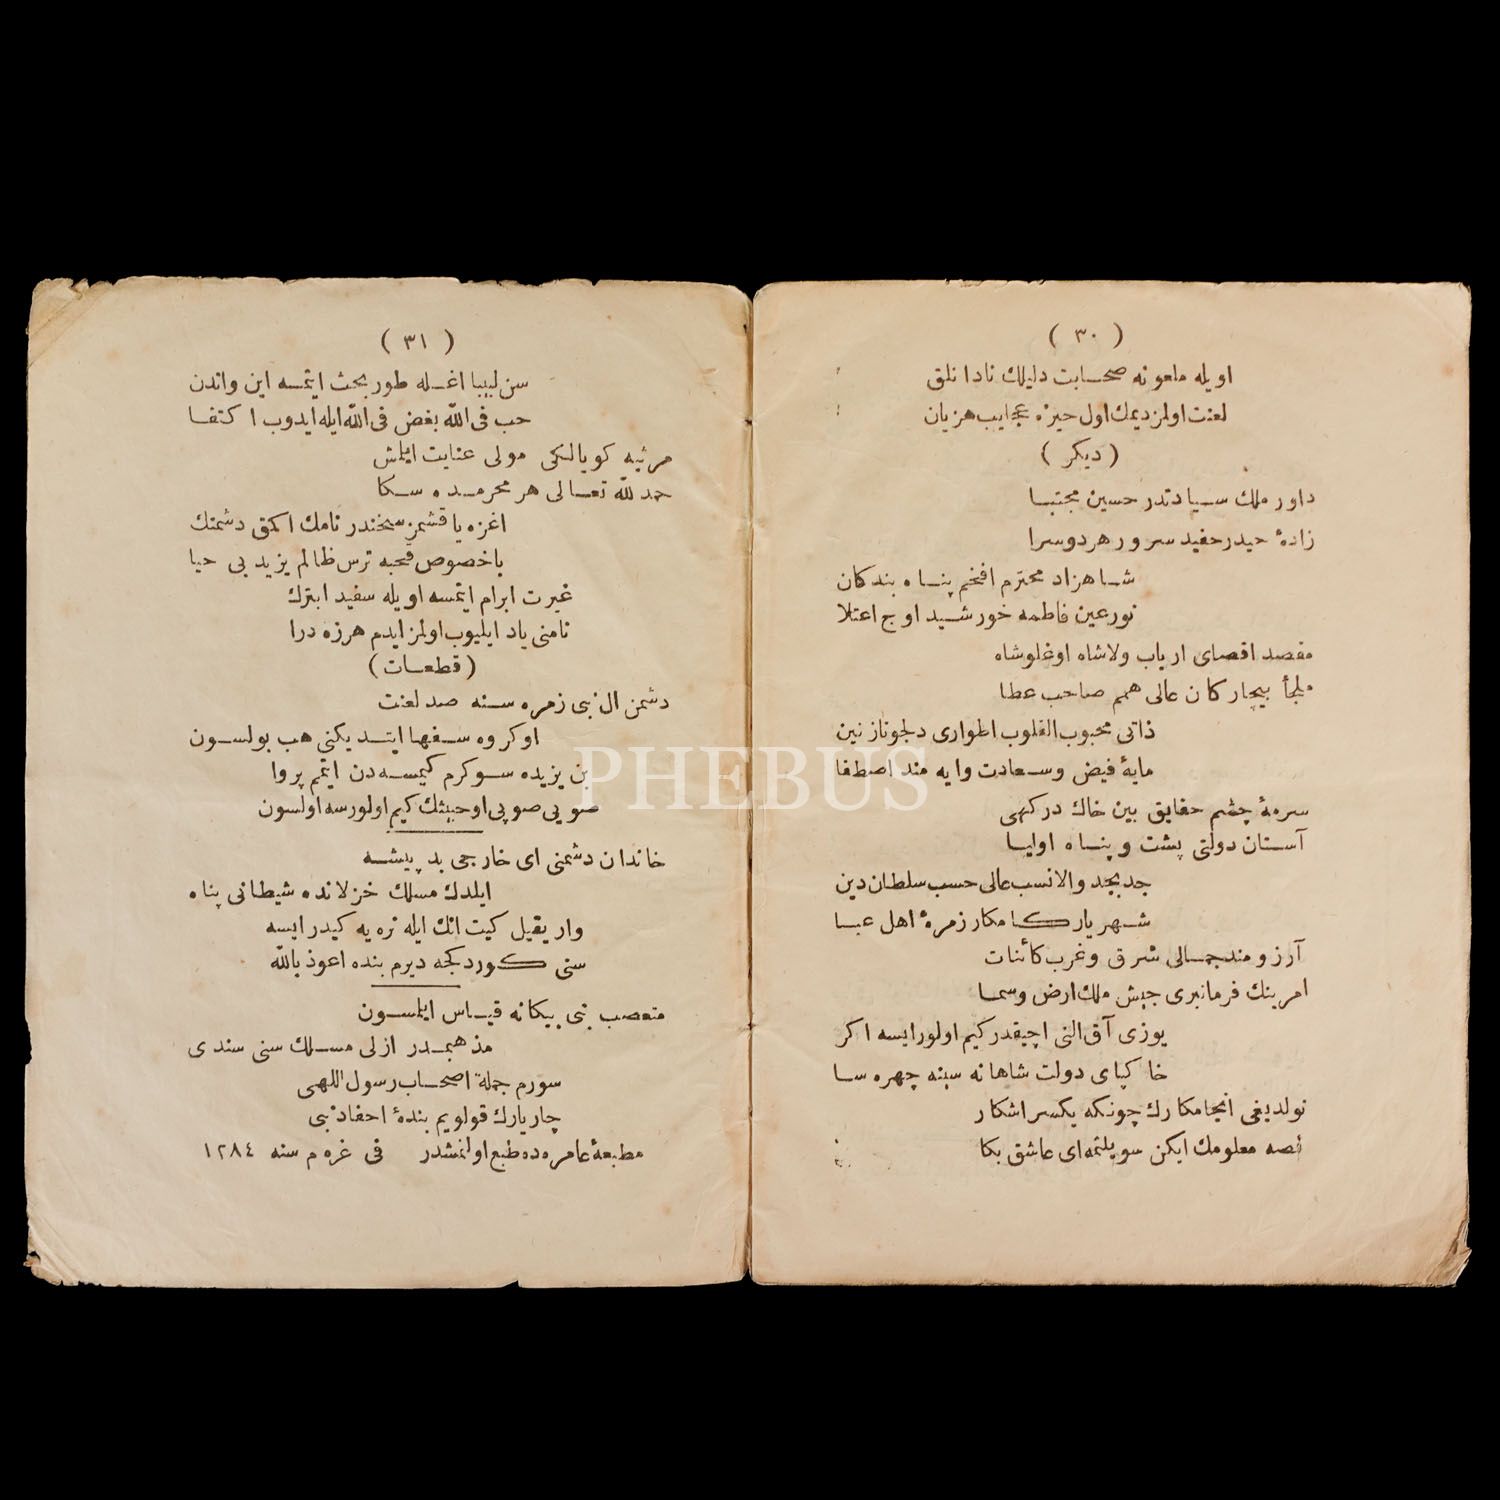 ( ٣٠ )
اويله ملعونه صحابت دليلك نادانلق
لعنت اولمز ديمك اول حيزه عجايب هزيان
( ديكر )
داور ملك سيادتدر حسين مجتبا
زادهٔ حيدر حفيد سرور هر دوسرا
شاهزاد محترم افخم پناه بندكان
نور عين فاطمه خورشيد اوج اعتلا
مقصد اقصای ارباب ولا شاه اوغلو شاه
ملجأ بيچاركان عالی همم صاحب عطا
ذاتی محبوب القلوب اطواری دلجو نازنين
مايهٔ فيض وسعادت وايه مند اصطفا
سرمهٔ چشم حقايق بين خاك دركهی
آستان دولتی پشت و پناه اوليا
جد بجد والانسب عالی حسب سلطان دين
شهريار كامكار زمرهٔ اهل عبا
آرزومند جمالی شرق وغرب كائنات
امرينك فرمانبری جيش ملك ارض وسما
يوزی آق النی اچيقدر كيم اولور ايسه اكر
خاكپای دولت شاهانه سينه چهره سا
نولديغی انجامكارك چونكه يكسر اشكار
قصه معلومك ايكن سويلتمه ای عاشق بكا
( ٣١ )
سن لبيبا اغله طور بحث ايتمسه اين واندن
حب فی الله بغض فی الله ايله ايدوب اكتفا
مرثيه كويالكی مولی عنايت ايلمش
حمد لله تعالی هر محرمده سكا
اغزه ياقشمز سخندر نامك اكمق دشمنك
باخصوص قحبه ترس ظالم يزيد بی حيا
غيرت ابرام ايتمسه اويله سفيد ابترك
نامنی ياد ايليوب اولمز ايدم هرزه درا
( قطعات )
دشمن ال نبی زمره سنه صد لعنت
اوكروه سفها ايتديكنی هب بولسون
بن يزيده سوكرم كيمسه دن ايتمم پروا
صويی صوپی او خبيثك كيم اولورسه اولسون
خاندان دشمنی ای خارجی بد پيشه
ايلدك مسلك خزلانده شيطانی پناه
وار يقيل كيت انك ايله نره يه كيدر ايسه
سنی كوردكجه ديرم بنده اعوذ بالله
متعصب بنی بيكانه قياس ايلمسون
مذهبمدر ازلی مسلك سنی سندی
سورم جملهٔ اصحاب رسول اللهی
چاريارك قولويم بندهٔ احفاد نبی
مطبعهٔ عامره ده طبع اولنمشدر فی غره م سنه ١٢٨٤
PHEBUS